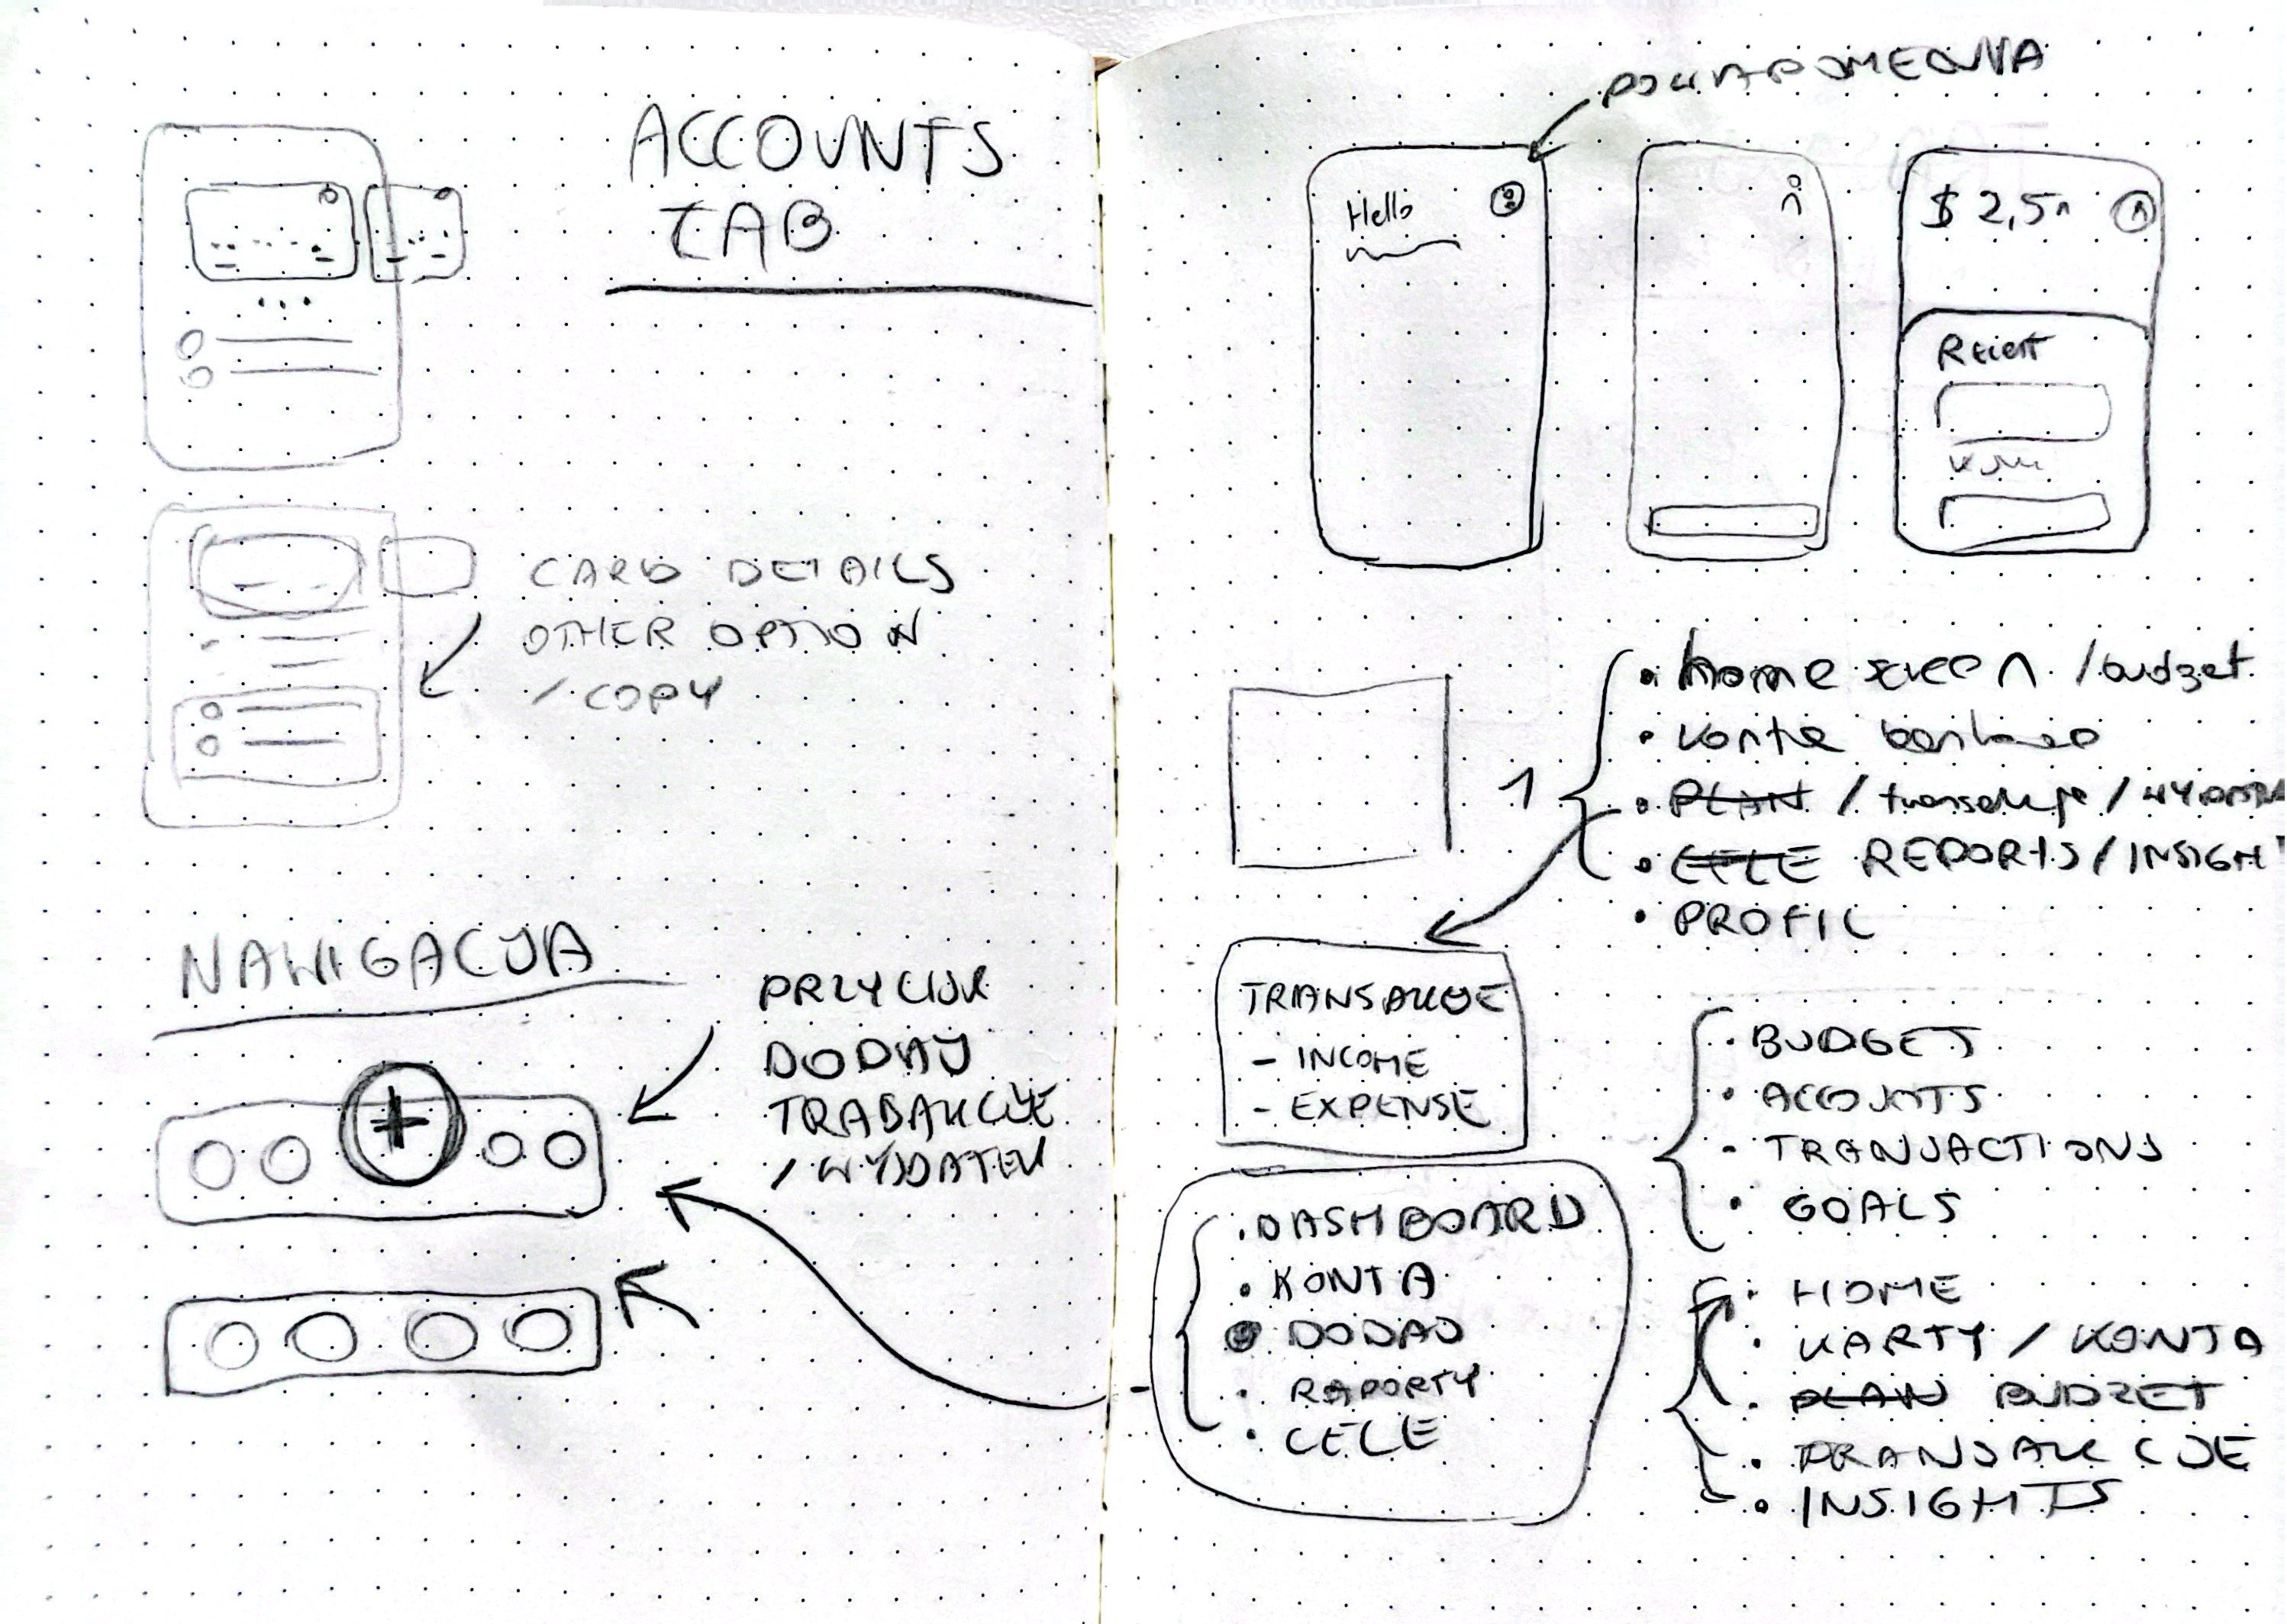 ACCOUNTS
TAB
CARD DETAILS
OTHER OPTION
/ COPY
NAWIGACJA
PRZYCISK
DODAJ
TRABAKCJE
/ WYDATEK
Hello
$ 2,5
home screen / budget
konta bankowe
PLAN / transakcje /
CELE REPORTS / INSIGHT
PROFIL
1
TRANSAKCJE
- INCOME
- EXPENSE
BUDGET
ACCOUNTS
TRANSACTIONS
GOALS
DASHBOARD
KONTA
DODAJ
RAPORTY
CELE
HOME
KARTY / KONTA
PLAN BUDZET
TRANSAKCJE
INSIGHTS